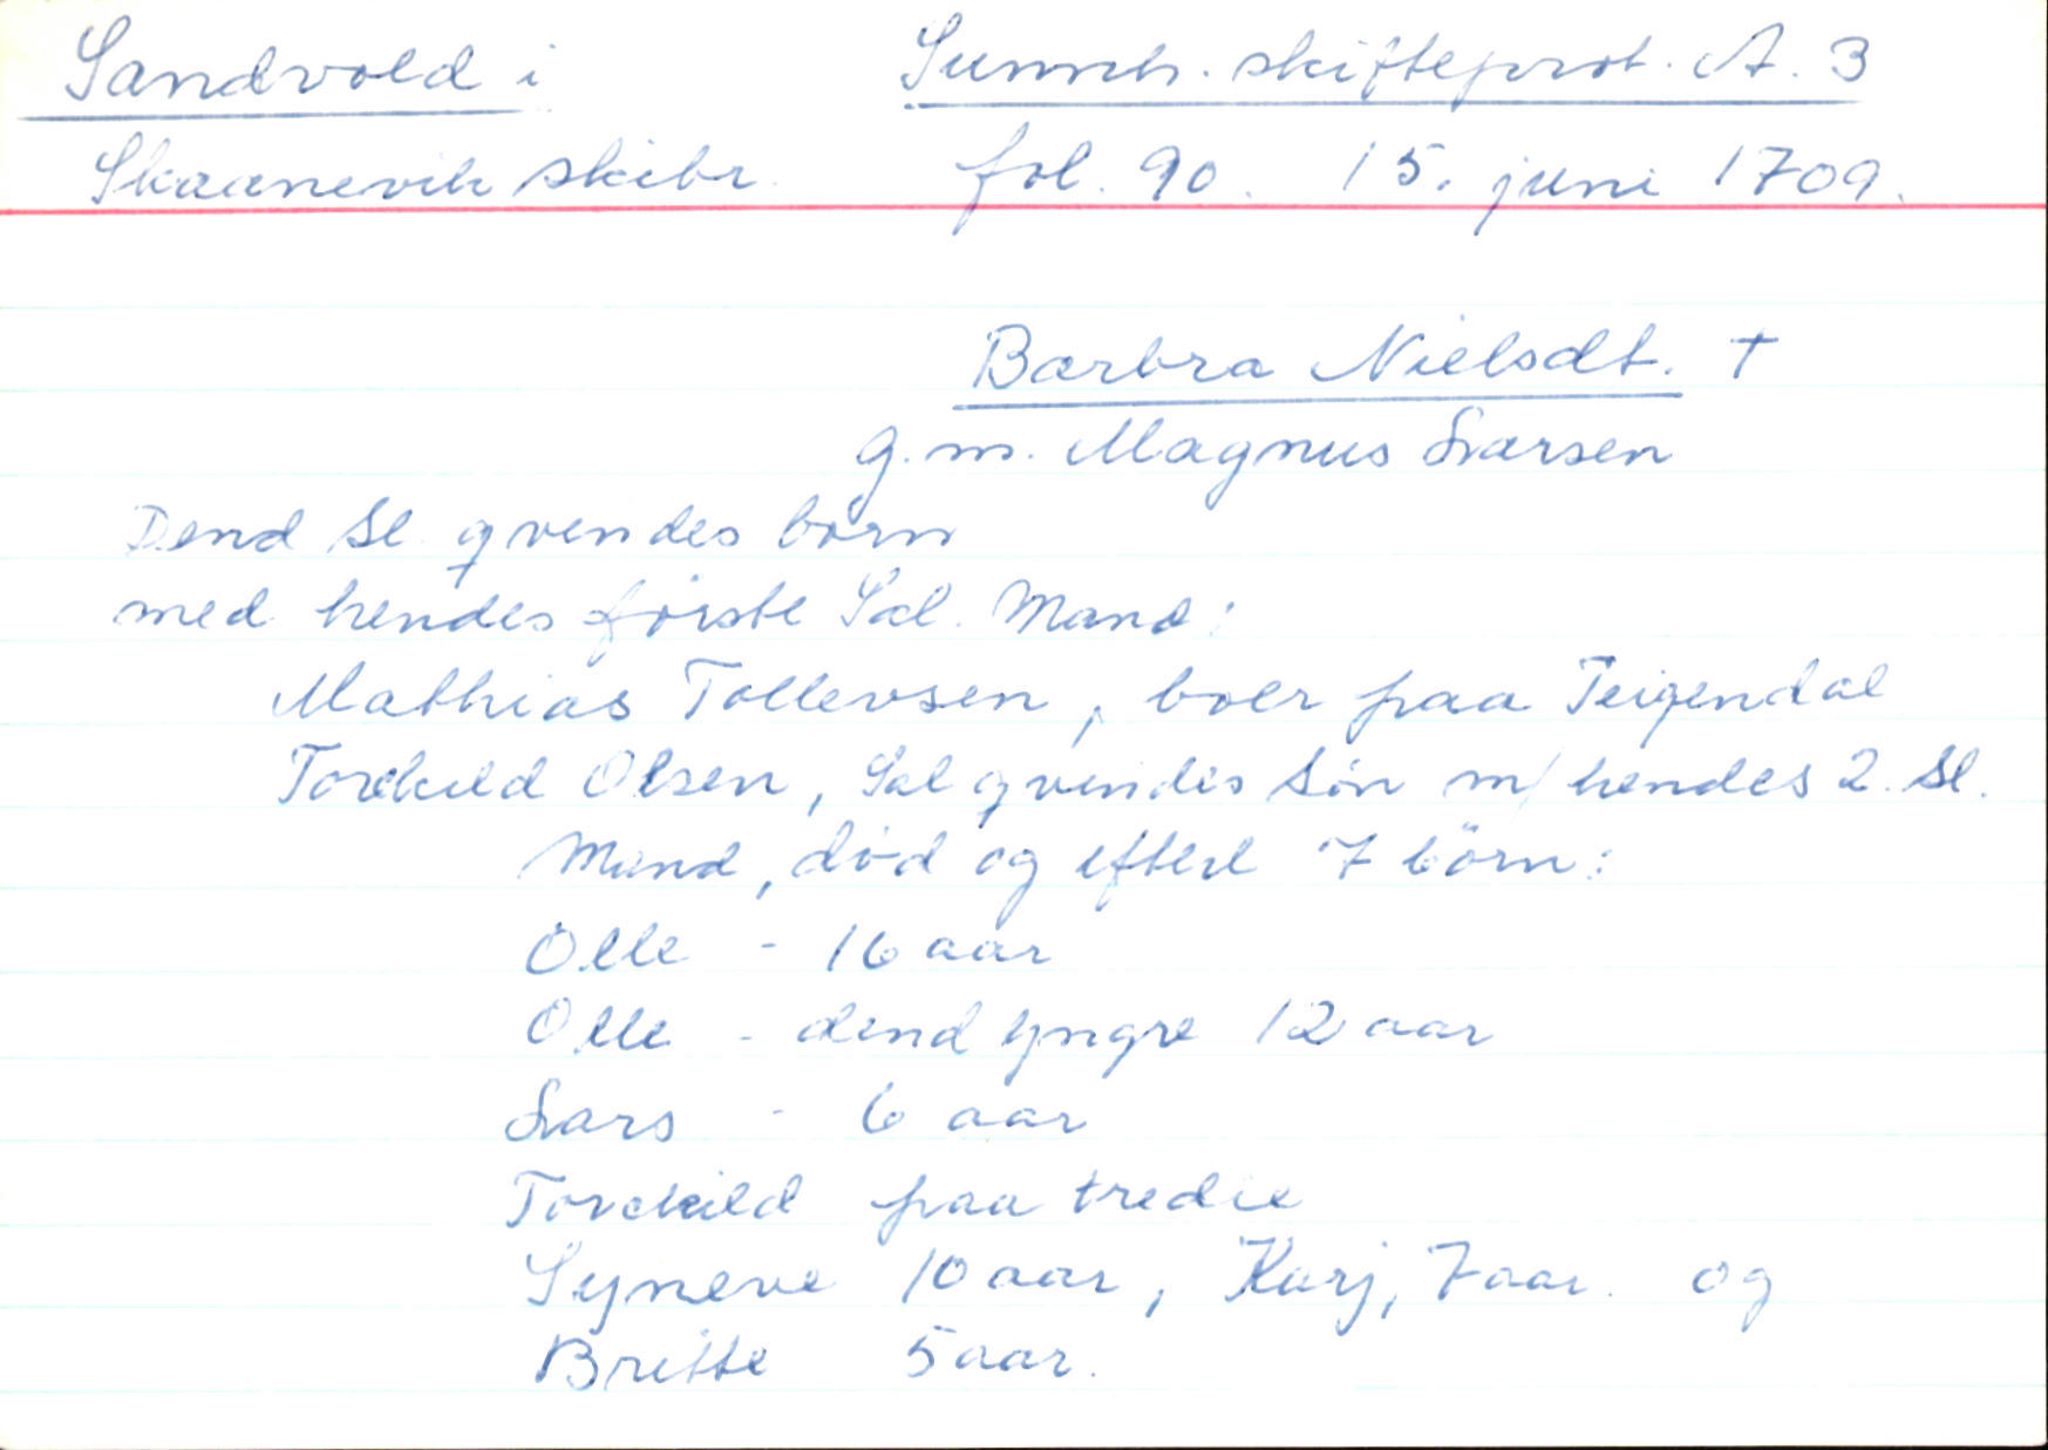 Sandvold i
Sunnh. skifteprot. A. 3
Skaanevik skibr.
fol. 90. 15. juni 1709.
Barbra Nielsdt. †
g. m. Magnus Larsen
Dend Sl. qvendes børn
med hendes første Sal. Mand:
Mathias Tollevsen, boer paa Teigendal
Torckild Olsen, Sal qvindes Søn m/ hendes 2. Sl.
Mand, død og efterl 7 börn:
Olle - 16 aar
Olle - dend yngre 12 aar
Lars - 6 aar
Torckild paa tredie
Syneve 10 aar, Karj, 7 aar. og
Britte 5 aar.